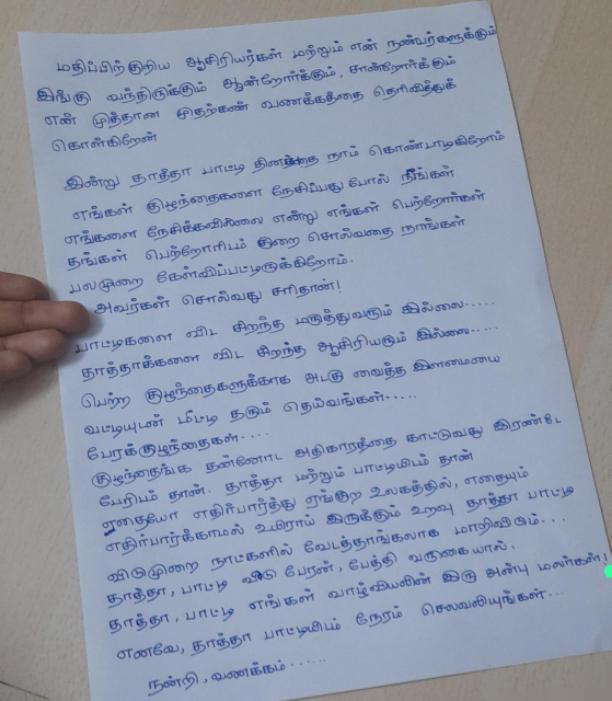 மதிப்பிற்குரிய ஆசிரியர்கள் மற்றும் என் நண்பர்களுக்கும்
இங்கு வந்திருக்கும் ஆன்றோர்க்கும், சான்றோர்க்கும்
என் முத்தான முதற்கண் வணக்கத்தை தெரிவித்துக்
கொள்கிறேன்
இன்று தாத்தா பாட்டி தினத்தை நாம் கொண்டாடுகிறோம்
எங்கள் குழந்தைகளை நேசிப்பது போல் நீங்கள்
எங்களை நேசிக்கவில்லை என்று எங்கள் பெற்றோர்கள்
தங்கள் பெற்றோரிடம் குறை சொல்வதை நாங்கள்
பலமுறை கேள்விப்பட்டிருக்கிறோம்.
அவர்கள் சொல்வது சரிதான்!
பாட்டிகளை விட சிறந்த மருத்துவரும் இல்லை.....
தாத்தாக்களை விட சிறந்த ஆசிரியரும் இல்லை.....
பெற்ற குழந்தைகளுக்காக அடகு வைத்த இளமையை
வட்டியுடன் மீட்டி தரும் தெய்வங்கள்.....
பேரக்குழந்தைகள்....
குழந்தைங்க தன்னோட அதிகாரத்தை காட்டுவது இரண்டே
பேரிடம் தான். தாத்தா மற்றும் பாட்டியிடம் தான்
ஏதையோ எதிர்பார்த்து ஏங்குற உலகத்தில், எதையும்
எதிர்பார்க்காமல் உயிராய் இருக்கும் உறவு தாத்தா பாட்டி
விடுமுறை நாட்களில் வேடந்தாங்கலாக மாறிவிடும்...
தாத்தா, பாட்டி வீடு பேரன், பேத்தி வருகையால்.
தாத்தா, பாட்டி எங்கள் வாழ்வியலின் இரு அன்பு மலர்கள்!
எனவே, தாத்தா பாட்டியிடம் நேரம் செலவலியுங்கள்...
நன்றி, வணக்கம்......